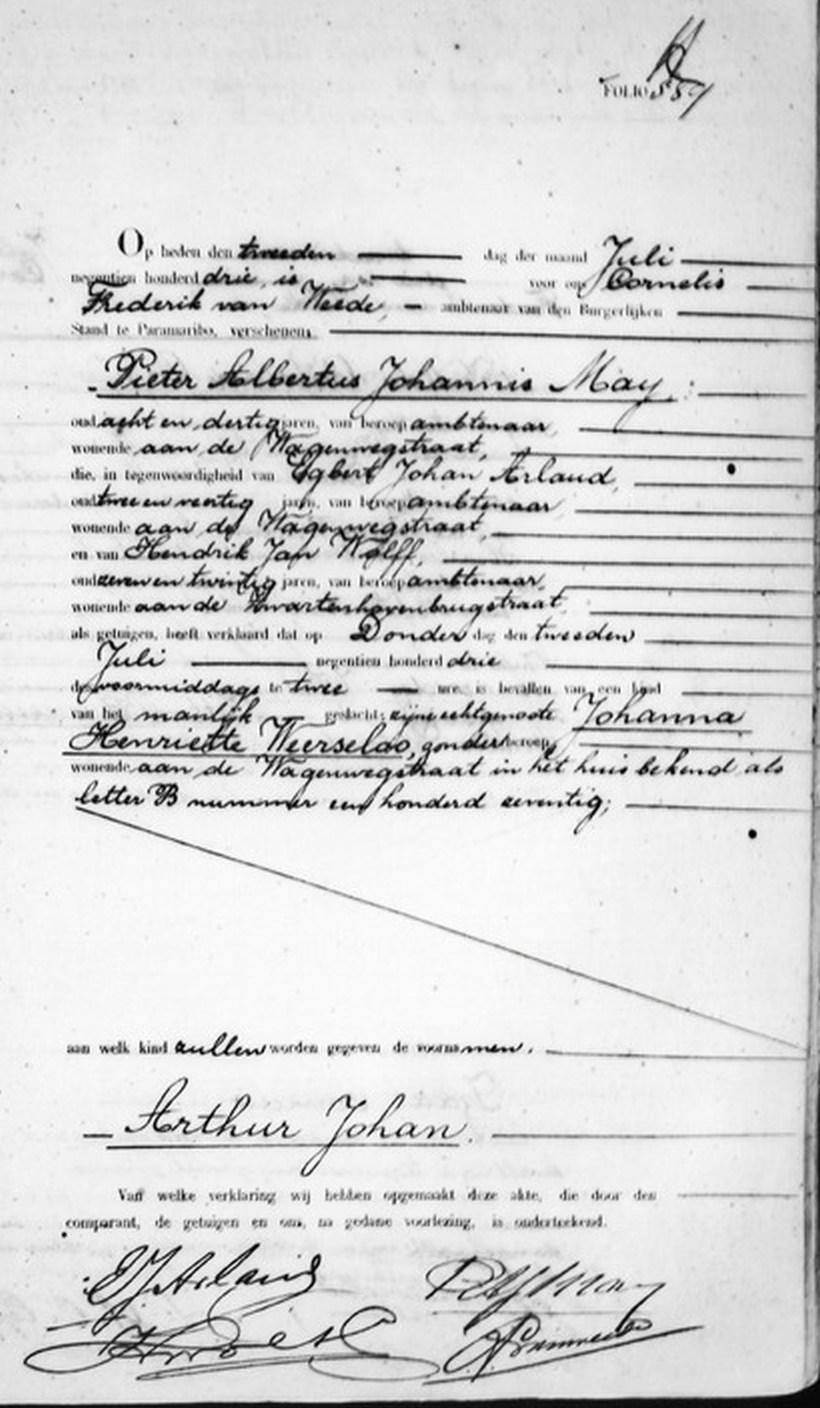 FOLIO 557
Op heden den tweeden dag der maand Juli
negentien honderd drie, is voor ons Cornelis
Frederik van Weede, ambtenaar van den Burgerlijken
Stand te Paramaribo, verschenen:
Pieter Albertus Johannis May,
oud acht en dertig jaren, van beroep ambtenaar,
wonende aan de Wagenwegstraat,
die, in tegenwoordigheid van Egbert Johan Arlaud,
oud twee en veertig jaren, van beroep ambtenaar,
wonende aan de Wagenwegstraat,
en van Hendrik Jan Wolff,
oud zeven en twintig jaren, van beroep ambtenaar,
wonende aan de Zwartenhovenbrugstraat,
als getuigen, heeft verklaard dat op Donderdag den tweeden
Juli negentien honderd drie
des voormiddags te twee ure, is bevallen van een kind
van het manlijk geslacht: zijne echtgenoote Johanna
Henriette Weerseloo, zonder beroep,
wonende aan de Wagenwegstraat in het huis bekend als
letter B nummer een honderd zeventig;
aan welk kind zullen worden gegeven de voornamen.
Arthur Johan.
Van welke verklaring wij hebben opgemaakt deze akte, die door den
comparant, de getuigen en ons, na gedane voorlezing, is onderteekend.
EJArlaud PAJMay
HJWolff